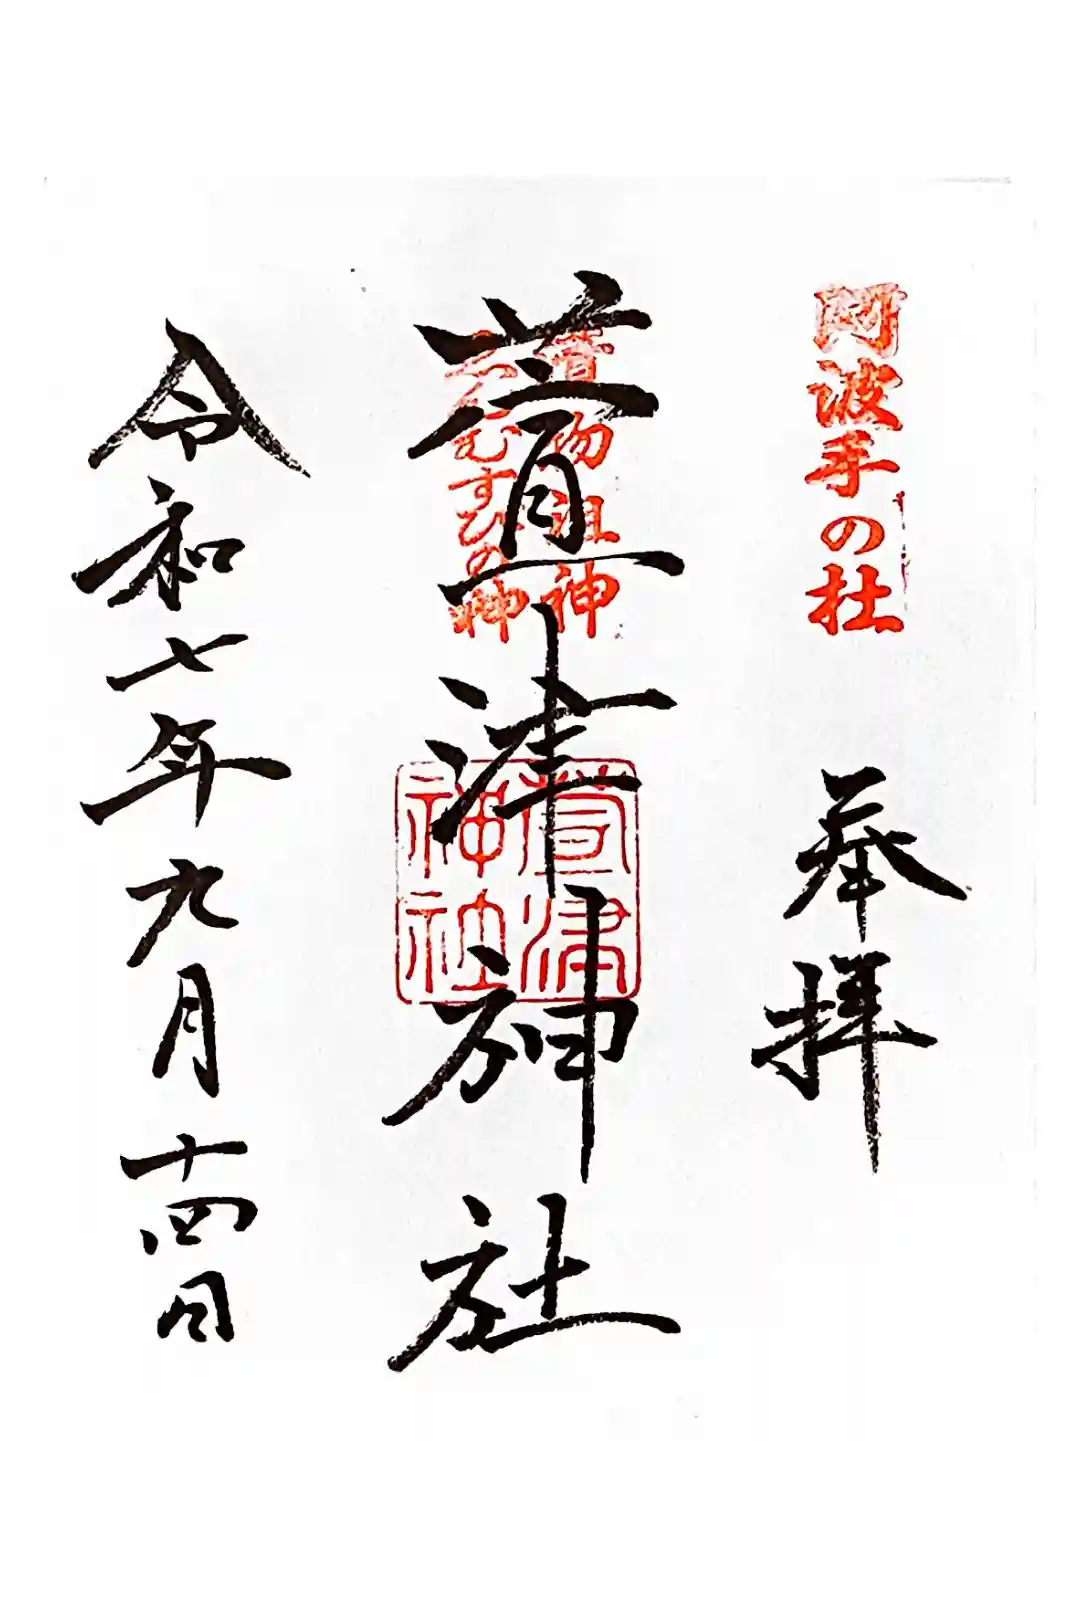 阿波手の杜
奉拝
漬物祖神
えんむすびの神
萱津神社
萱津
神社
令和七年九月十四日